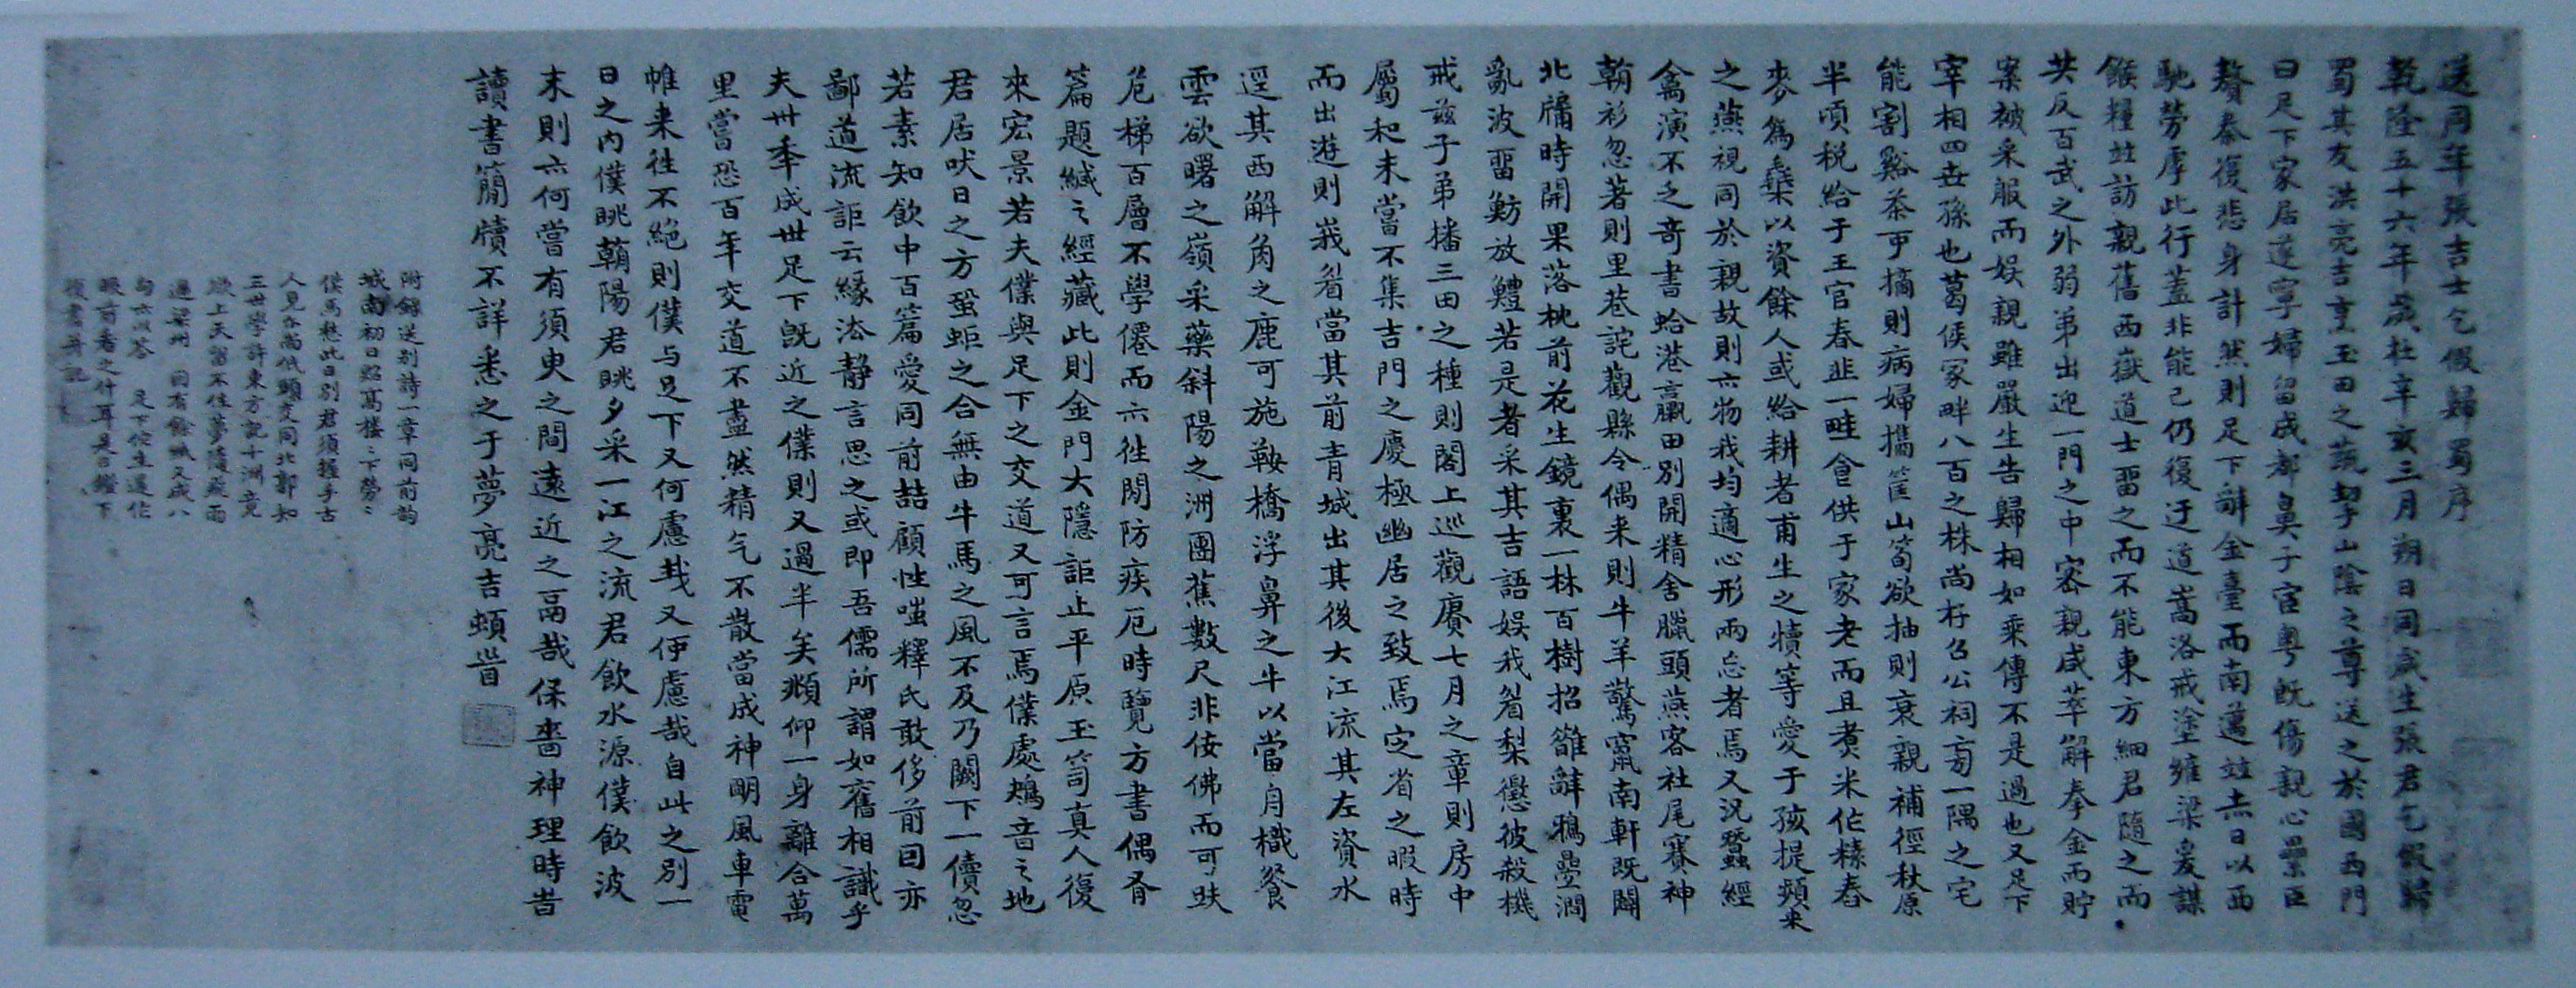 送同年張吉士乞假歸蜀序
乾隆五十六年歲在辛亥三月朔日同歲生張君乞假歸
蜀其友洪亮吉烹玉田之蔬挈山陰之尊送之於國西門
曰足下家居遂寧婦留成都鼻子宦粵既傷親心纍臣
贅秦復悲身計然則足下辭金臺而南邁竝赤日以西
馳勞厚此行蓋非能已仍復迂道嵩洛戒塗雍梁爰謀
餱糧竝訪親舊西嶽道士留之而不能東方細君隨之而
共反百武之外弱弟出迎一門之中密親咸萃解奉金而貯
案被采服而娛親雖嚴生告歸相如乘傳不是過也又足下
宰相四世孫也葛侯冢畔八百之株尚存召公祠旁一隅之宅
能割谿茶可摘則病婦攜筐山筍欲抽則衰親補徑秋原
半頃稅給于王官春韭一畦食供于家老而且煑米作糜舂
麥為䴰以資餘人或給耕者甫生之犢等愛于孩提頻來
之燕視同於親故則六物我均適心形兩忘者焉又況蠶經
禽演不乏奇書蛤港蠃田別開精舍臘頭燕客社尾賽神
朝衫忽著則里巷詫觀縣令偶来則牛羊驚竄南軒既闢
北牖時開果落枕前花生鏡裏一林百樹招雛辭鵶壘澗
亂波留魴放鱧若是者采其吉語娛我眉梨懲彼殺機
戒茲子弟播三田之種則閣上巡觀賡七月之章則房中
屬和未嘗不集吉門之慶極幽居之致焉定省之暇時
而出遊則峩眉當其前青城出其後大江流其左資水
逕其西解角之鹿可施鞍橋浮鼻之牛以當舟檝餐
雲欲曙之嶺采藥斜陽之洲團蕉數尺非佞佛而可趺
危梯百層不學僊而六徃閒防疾厄時覽方書偶胥
篇題緘之經藏此則金門大隱詎止平原玉笥真人復
來宏景若夫僕與足下之交道又可言焉僕處鴂音之地
君居吠日之方蛩蚷之合無由牛馬之風不及乃闕下一儥忽
若素知飲中百篇愛同前喆顧性嗤釋氏敢侈前因亦
鄙道流詎云緣法靜言思之或即吾儒所謂如舊相識乎
夫卅年成世足下既近之僕則又過半矣頫仰一身離合萬
里嘗恐百年交道不盡然精气不散當成神眀風車電
帷来徃不絕則僕与足下又何慮哉又何慮哉自此之別一
日之內僕眺朝陽君眺夕采一江之流君飲水源僕飲波
末則六何嘗有須臾之間遠近之鬲哉保嗇神理時昔
讀書簡牘不詳悉之于夢亮吉頓首
附錄送別詩一章同前韵
城南初日照高樓之下勞之
僕馬愁此日別君須握手古
人見亦尚低頭交同北郭知
三世學許東方記十洲竟
上天留不住夢隨飛雨
過梁州 因有餘紙又成八
句六以答 足下佗生還作
眼前看之什耳是日鐙下
復書并記